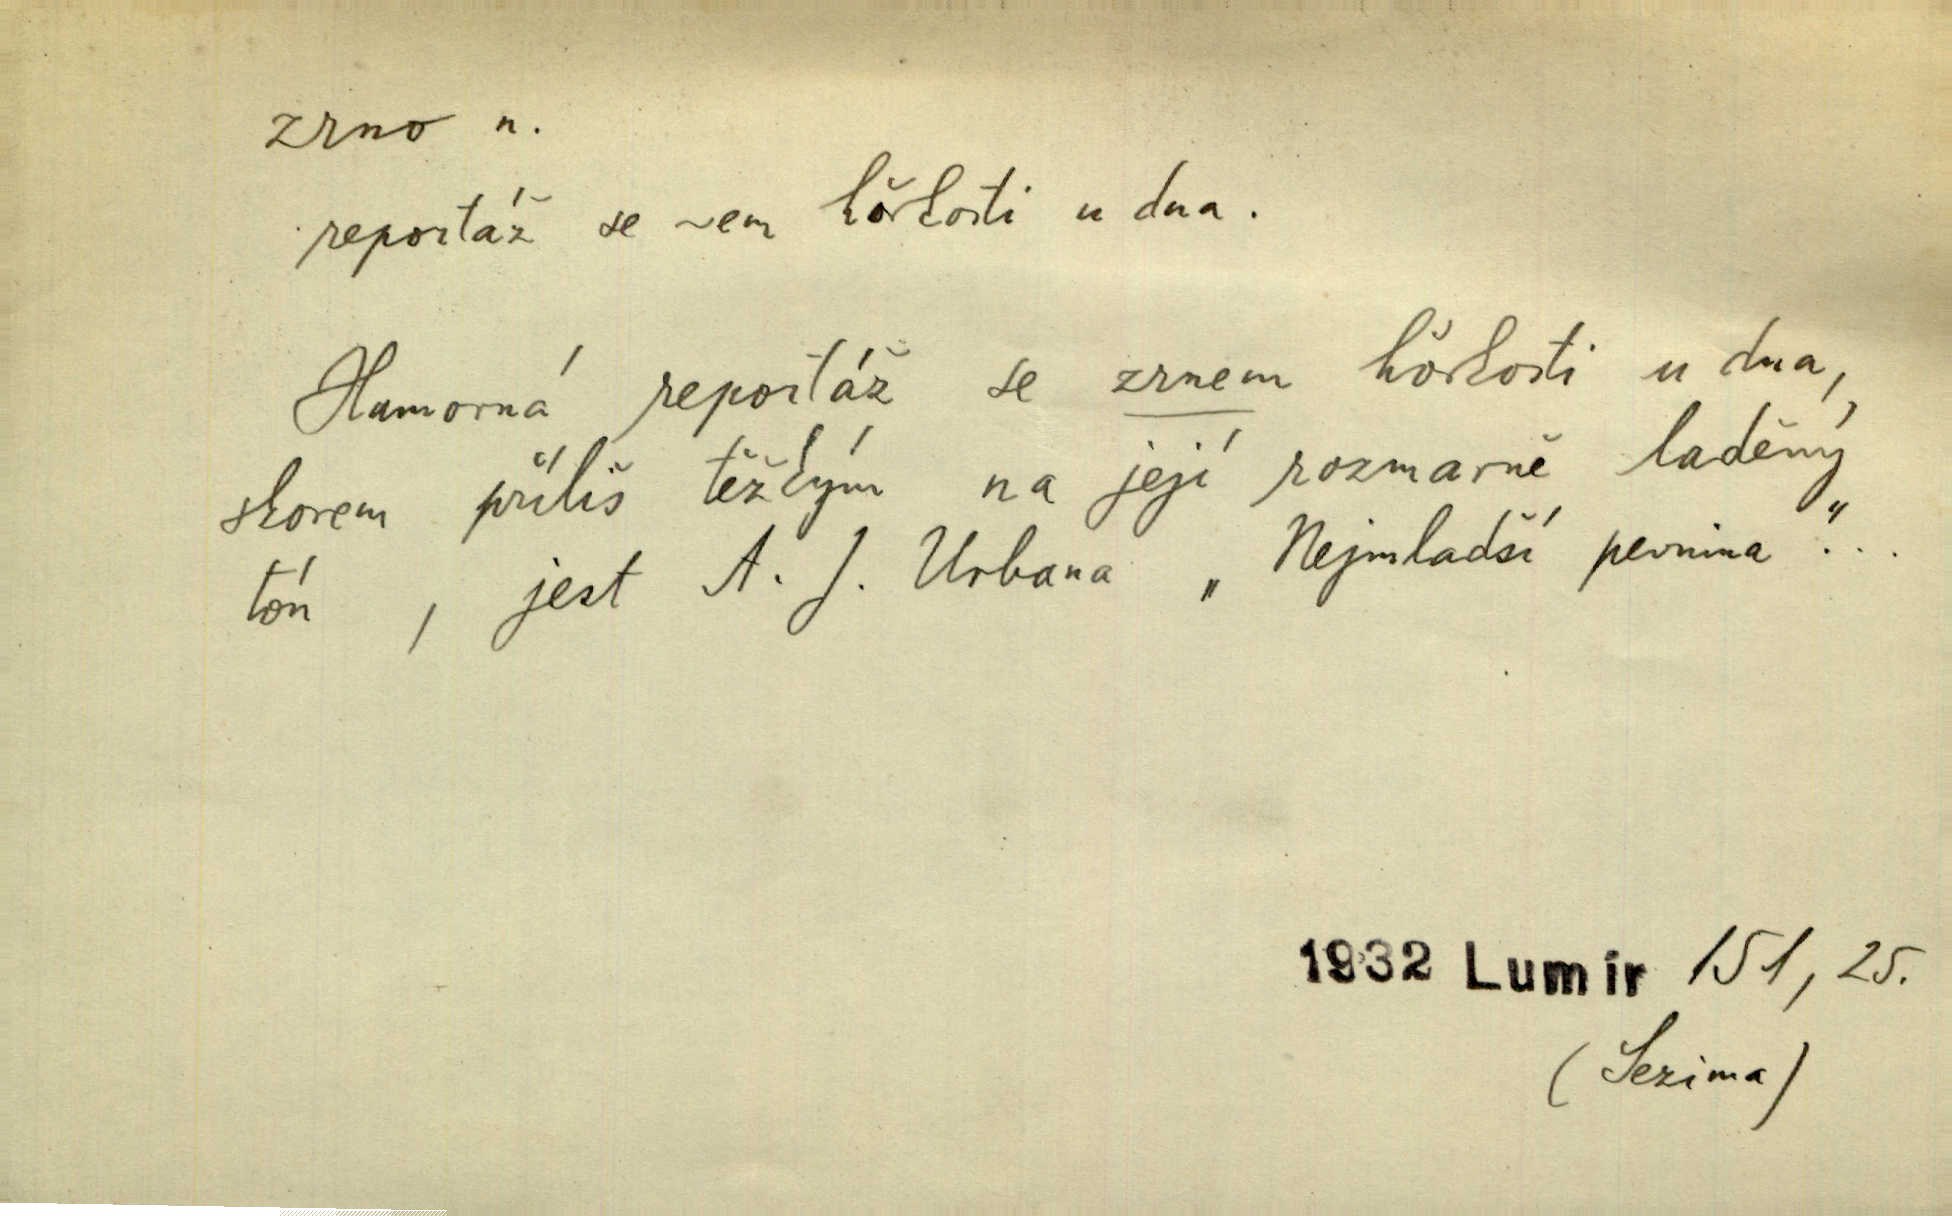 zrno n.
reportáž se ~em hořkosti u dna.
Humorná reportáž se zrnem hořkosti u dna,
skorem příliš těžkým na její rozmarně laděný
tón, jest A. J. Urbana „Nejmladší pevnina"...
1932 Lumír 151, 25.
(Sezima)